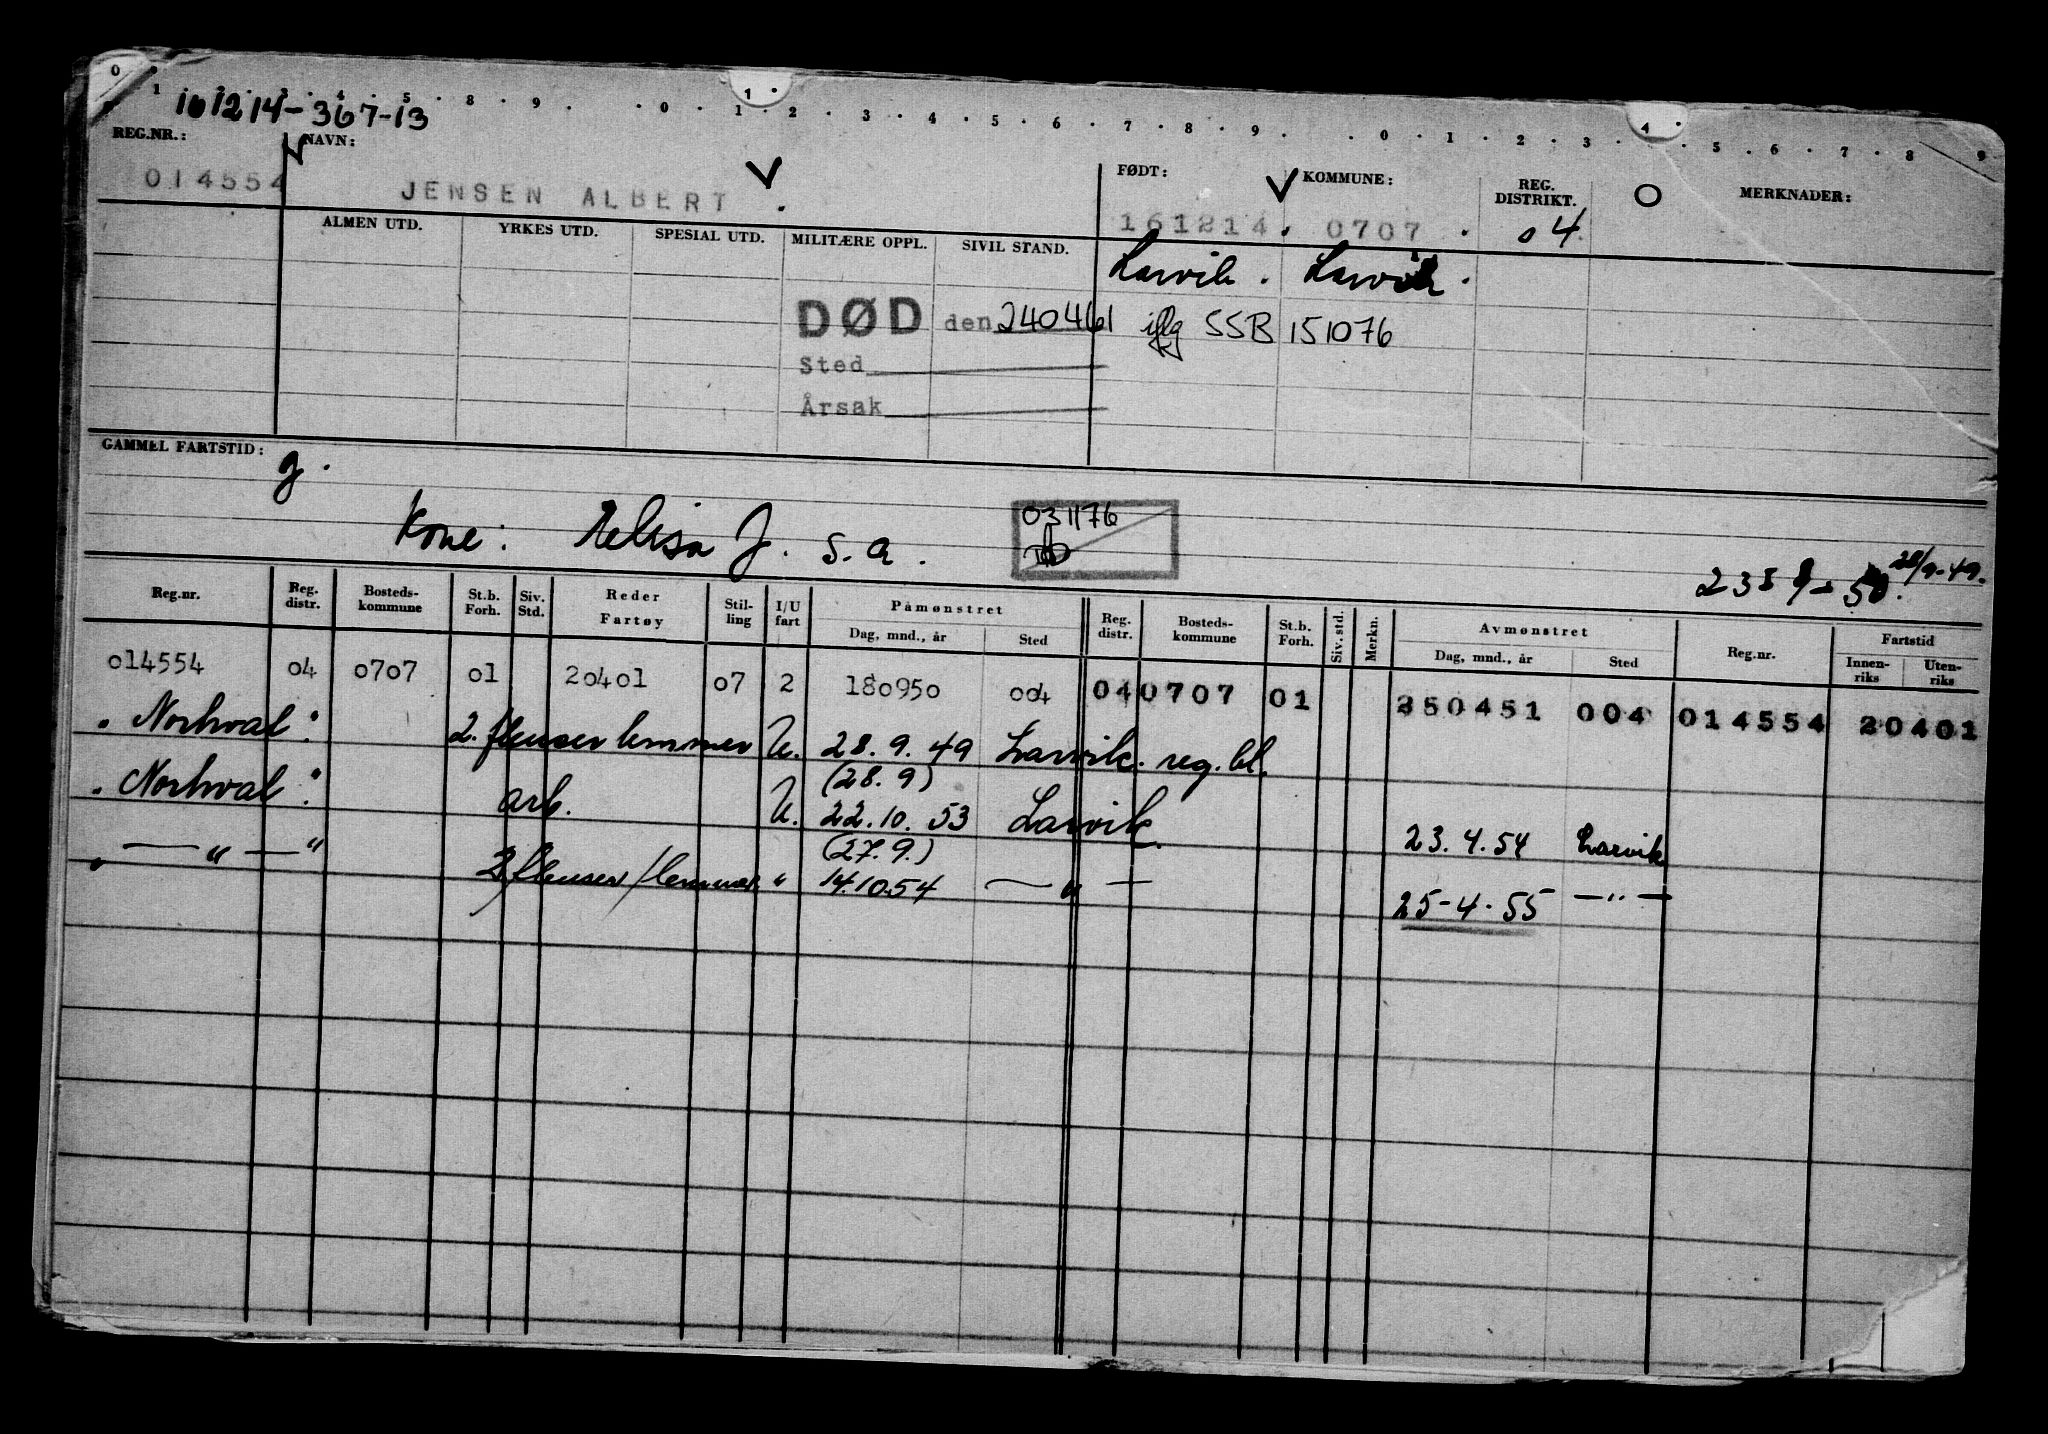 0 1 2 3 4 5 8 9 0 1 2 3 4 5 6 7 8 9 0 1 2 3 4 5 6 7 8 9
161214-367-13
REG.NR.: NAVN: FØDT: KOMMUNE: REG. DISTRIKT. O MERKNADER:
014554 JENSEN ALBERT . 161214. 0707 . 04
ALMEN UTD. YRKES UTD. SPESIAL UTD. MILITÆRE OPPL. SIVIL STAND. Larvik. Larvik.
DØD den 240461 iflg SSB 151076
Sted
Årsak
GAMMEL FARTSTID: g.
Kone: J. s.a. 031176
28/9-49.
Reg.nr. Reg. distr. Bosteds- kommune St.b. Forh. Siv. Std. Reder Fartøy Stil- ling I/U fart Påmønstret Dag, mnd., år Sted Reg. distr. Bosteds- kommune St.b. Forh. Siv. std. Merkn. Avmønstret Dag, mnd., år Sted Reg.nr. Fartstid Innen- riks Uten- riks
014554 04 0707 01 20401 07 2 180950 004 04 0707 01 250451 004 014554 20401
"Norhval". 2. flenser lemmer U. 28. 9. 49 Larvik. reg. bl.
(28. 9)
"Norhval". arb. U. 22. 10. 53 Larvik. 23. 4. 54 Larvik
(27. 9.)
" — " — " 2 flenser/lemmer " 14.10.54 — " — 25-4-55 — " —